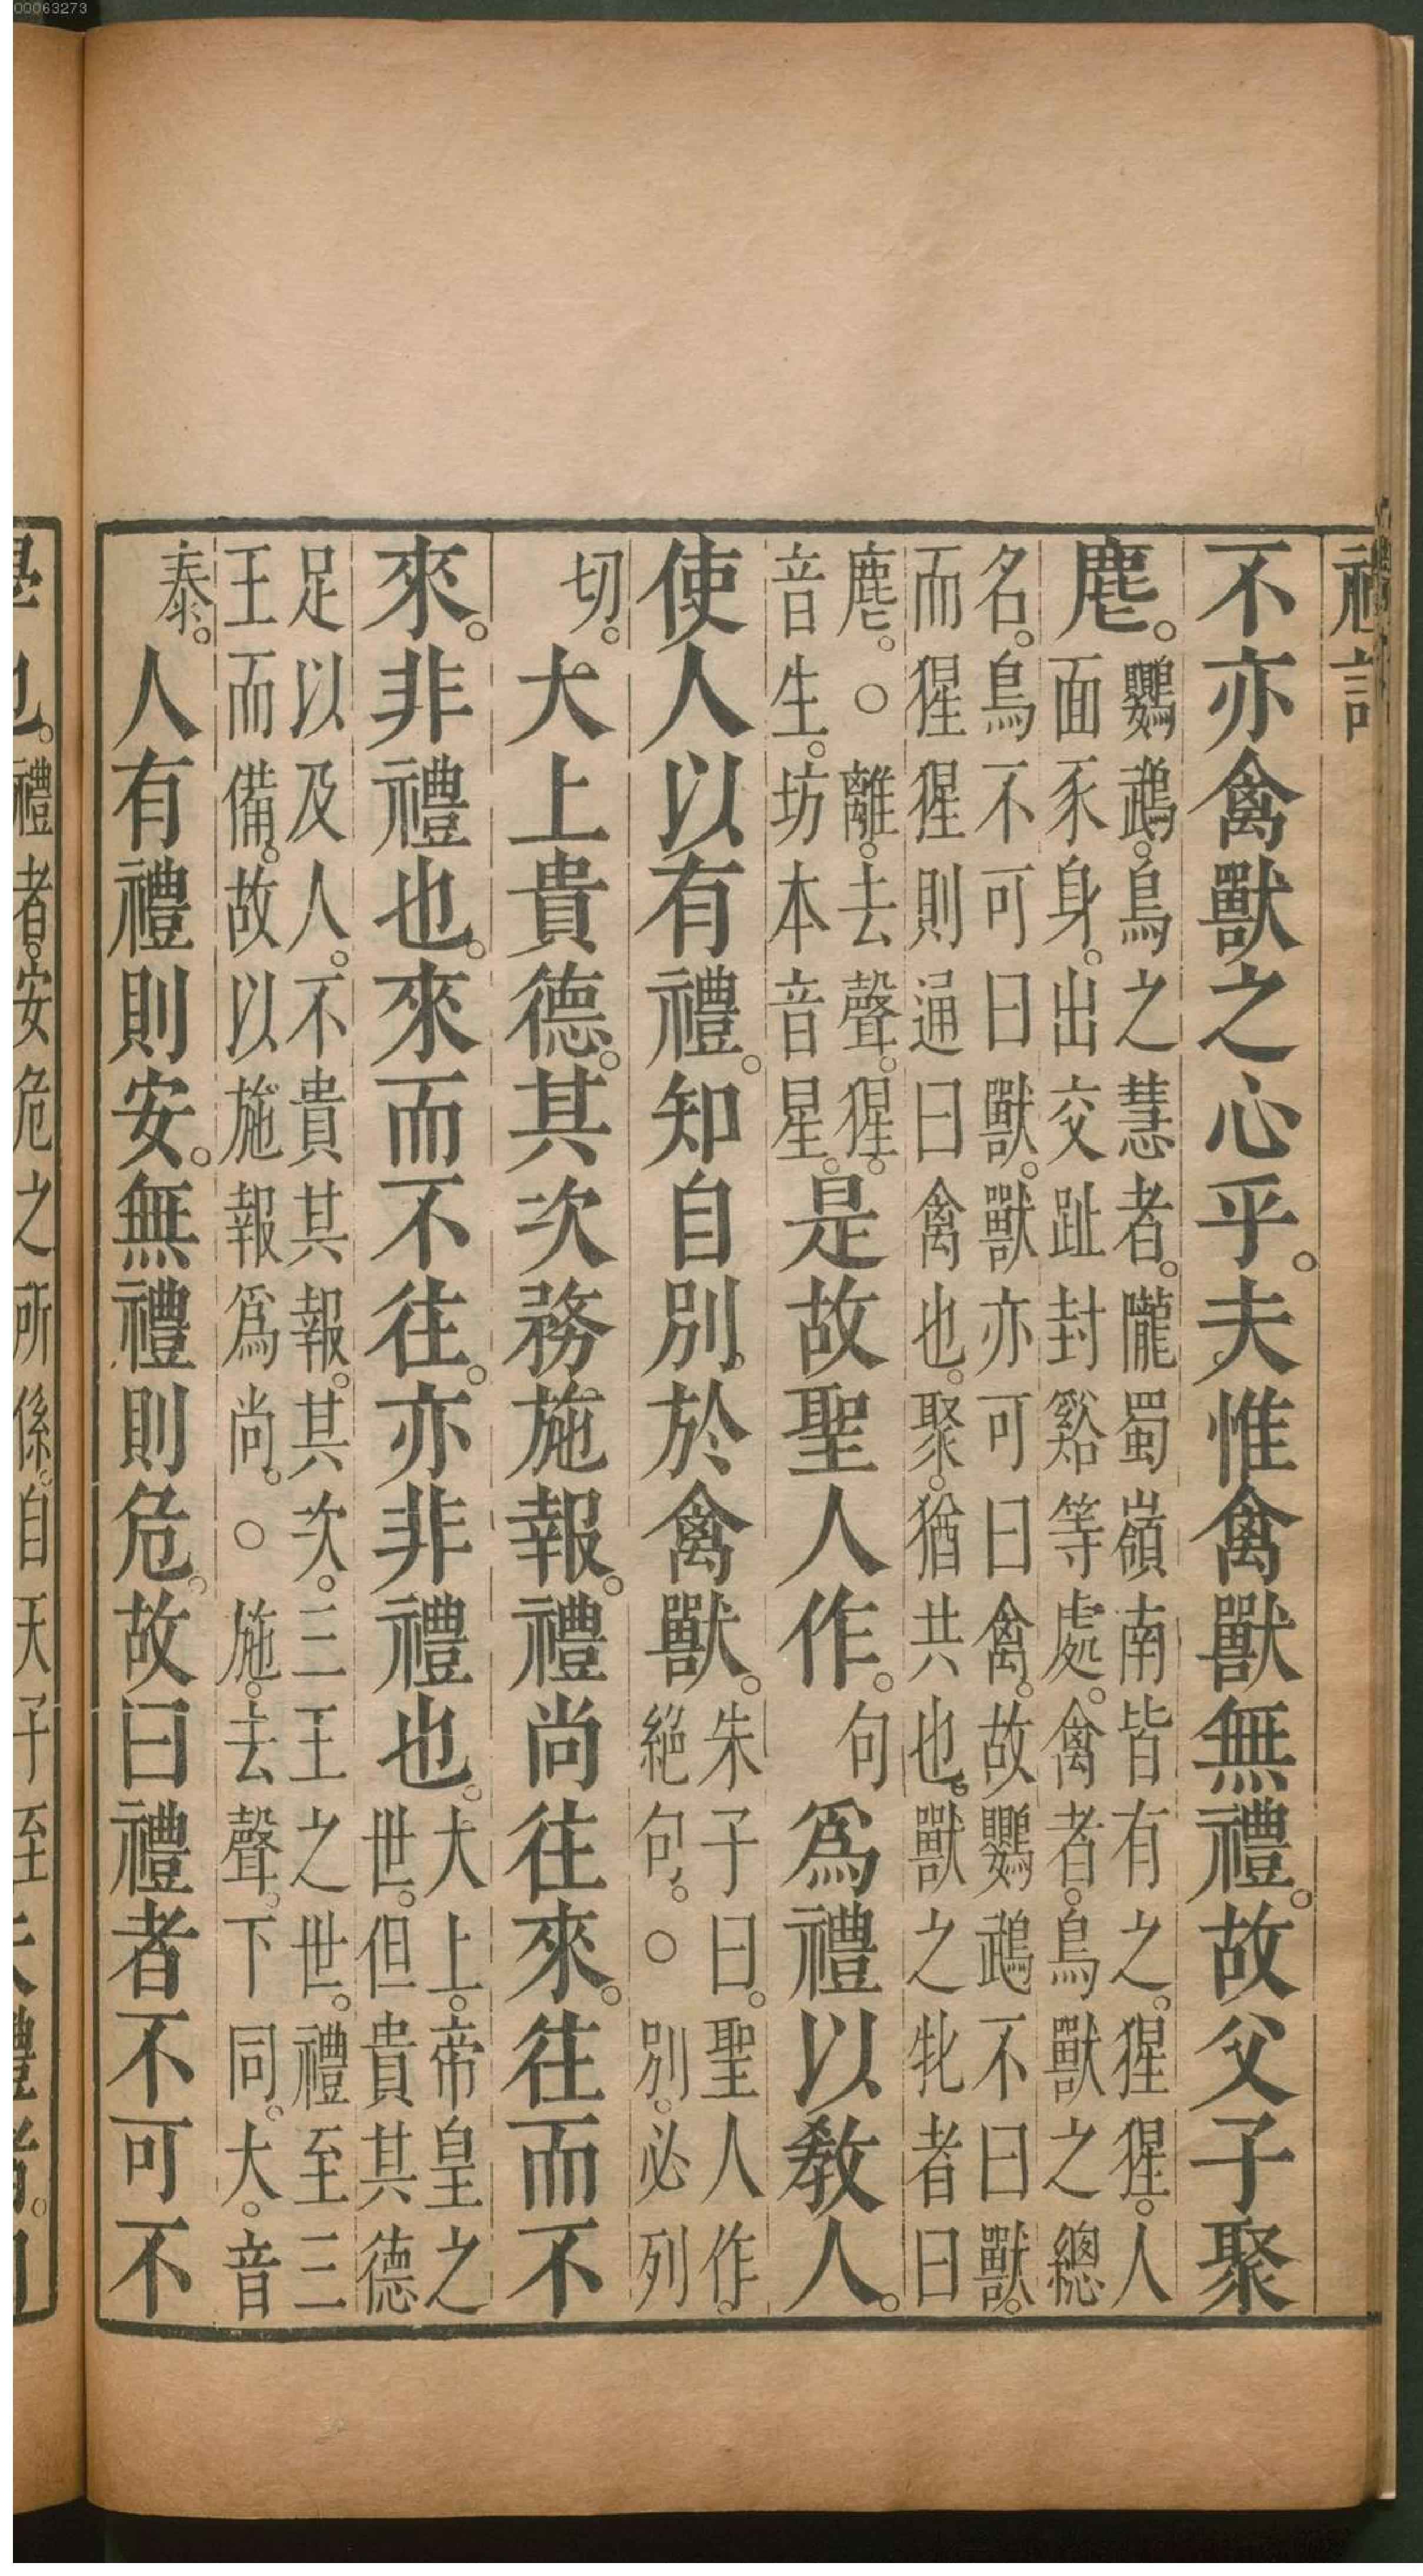 00063273
禮記
不亦禽獸之心乎。夫惟禽獸無禮。故父子聚
麀。鸚鵡。鳥之慧者。隴蜀嶺南皆有之。猩猩。人
面豕身。出交趾封谿等處。禽者。鳥獸之總
名。鳥不可曰獸。獸亦可曰禽。故鸚鵡不曰獸。
而猩猩則通曰禽也。聚。猶共也。獸之牝者曰
麀。○離。去聲。猩。
音生。坊本音星。
是故聖人作。句爲禮以敎人。
使人以有禮。知自別於禽獸。朱子曰。聖人作。
絕句。○別。必列
切。大上貴德。其次務施報。禮尚往來。往而不
來。非禮也。來而不往。亦非禮也。大上。帝皇之
世。但貴其德
足以及人。不貴其報。其次。三王之世。禮至三
王而備。故以施報爲尚。○施。去聲。下同。大。音
泰。人有禮則安。無禮則危。故曰禮者不可不
學也。禮者。安危之所係。自天子至